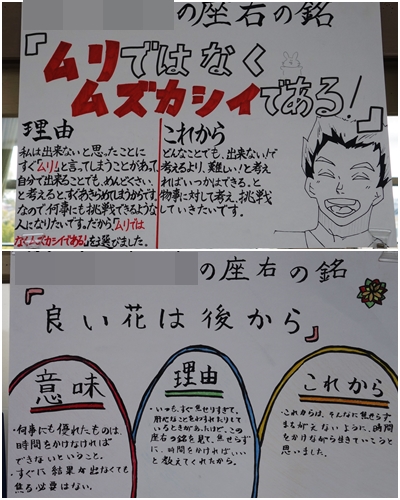 の座右の銘
『ムリではなく
ムズカシイである!』
理由
私は出来ないと思ったことに
すぐ「ムリ」と言ってしまうことがあって、
自分で出来ることでも、めんどくさい
と考えるとすぐあきらめてしまうからです。
なので何事にも挑戦できるような
人になりたいです。だから「ムリでは
なくムズカシイである!」を選びました。
これから
どんなことでも、出来ない!で
考えるより、難しい!と考え
ればいつかはできる。と
物事に対して考え、挑戦
していきたいです。
の座右の銘
『良い花は後から』
意味
・何事にも優れたものは、
時間をかけなければ
できないということ。
・すぐに結果が出なくても
焦る必要はない。
理由
・いつも、すぐ焦せりすぎて、
用心なことをわすれたりして
いるときがあったけど、この
座右の銘を見て、焦せらず
に、時間をかければいい
と教えてくれたから。
これから
・これからは、そんなに焦せらず
まちがえないように、時間
をかけながら生きていこうと
思いました。